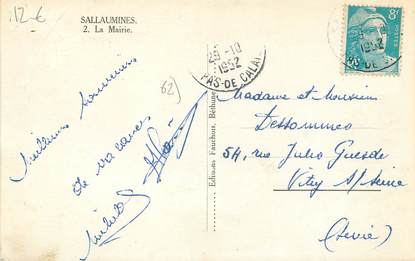 12€
SALLAUMINES.
2. La Mairie.
29-10
1952
PAS-DE CALAIS
62)
Meilleurs souvenirs
de vacances
Edition Fauchon, Béthune
Madame et Monsieur
Dessommes
54, rue Jules Guesde
Vitry s/Seine
(Seine)
8F
POSTES
1952
PAS-DE